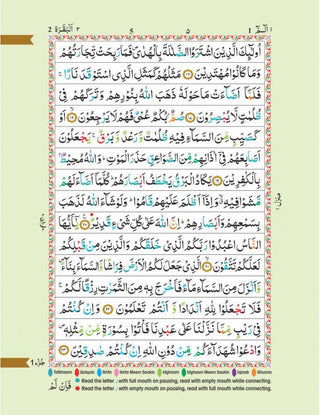 2 اَلْبَقَرَة ٢ 5 ٥ الٓمّٓ ١ 1
اُولٰٓئِكَ الَّذِيْنَ اشْتَرَوُا الضَّلٰلَةَ بِالْهُدٰى فَمَا رَبِحَتْ تِّجَارَتُهُمْ
وَمَا كَانُوْا مُهْتَدِيْنَ ۝١٦ مَثَلُهُمْ كَمَثَلِ الَّذِى اسْتَوْقَدَ نَارًا ۚ
فَلَمَّآ اَضَآءَتْ مَا حَوْلَهٗ ذَهَبَ اللّٰهُ بِنُوْرِهِمْ وَتَرَكَهُمْ فِىْ
ظُلُمٰتٍ لَّا يُبْصِرُوْنَ ۝١٧ صُمٌّۢ بُكْمٌ عُمْىٌ فَهُمْ لَا يَرْجِعُوْنَ ۝١٨ اَوْ
كَصَيِّبٍ مِّنَ السَّمَآءِ فِيْهِ ظُلُمٰتٌ وَّرَعْدٌ وَّبَرْقٌ ۚ يَجْعَلُوْنَ
اَصَابِعَهُمْ فِىْٓ اٰذَانِهِمْ مِّنَ الصَّوَاعِقِ حَذَرَ الْمَوْتِ ؕ وَاللّٰهُ مُحِيْطٌۢ
بِالْكٰفِرِيْنَ ۝١٩ يَكَادُ الْبَرْقُ يَخْطَفُ اَبْصَارَهُمْ ؕ كُلَّمَآ اَضَآءَ لَهُمْ
مَّشَوْا فِيْهِ ۙ وَاِذَآ اَظْلَمَ عَلَيْهِمْ قَامُوْا ؕ وَلَوْ شَآءَ اللّٰهُ لَذَهَبَ
بِسَمْعِهِمْ وَاَبْصَارِهِمْ ؕ اِنَّ اللّٰهَ عَلٰى كُلِّ شَىْءٍ قَدِيْرٌ ۝٢٠ يٰٓاَيُّهَا
النَّاسُ اعْبُدُوْا رَبَّكُمُ الَّذِىْ خَلَقَكُمْ وَالَّذِيْنَ مِنْ قَبْلِكُمْ
لَعَلَّكُمْ تَتَّقُوْنَ ۝٢١ الَّذِىْ جَعَلَ لَكُمُ الْاَرْضَ فِرَاشًا وَّالسَّمَآءَ بِنَآءً ۪
وَّاَنْزَلَ مِنَ السَّمَآءِ مَآءً فَاَخْرَجَ بِهٖ مِنَ الثَّمَرٰتِ رِزْقًا لَّكُمْ ۚ
فَلَا تَجْعَلُوْا لِلّٰهِ اَنْدَادًا وَّاَنْتُمْ تَعْلَمُوْنَ ۝٢٢ وَاِنْ كُنْتُمْ
فِىْ رَيْبٍ مِّمَّا نَزَّلْنَا عَلٰى عَبْدِنَا فَاْتُوْا بِسُوْرَةٍ مِّنْ مِّثْلِهٖ ۪
وَادْعُوْا شُهَدَآءَكُمْ مِّنْ دُوْنِ اللّٰهِ اِنْ كُنْتُمْ صٰدِقِيْنَ ۝٢٣
منزل ١
Tafkheem Qalqala Ikhfa Ikhfa Meem Saakin Idghaam Idghaam Meem Saakin Iqlaab Ghunna
Read the letter with full mouth on pausing, read with empty mouth while connecting.
Read the letter with empty mouth on pausing, read with full mouth while connecting.
فَاِنْ لَّمْ